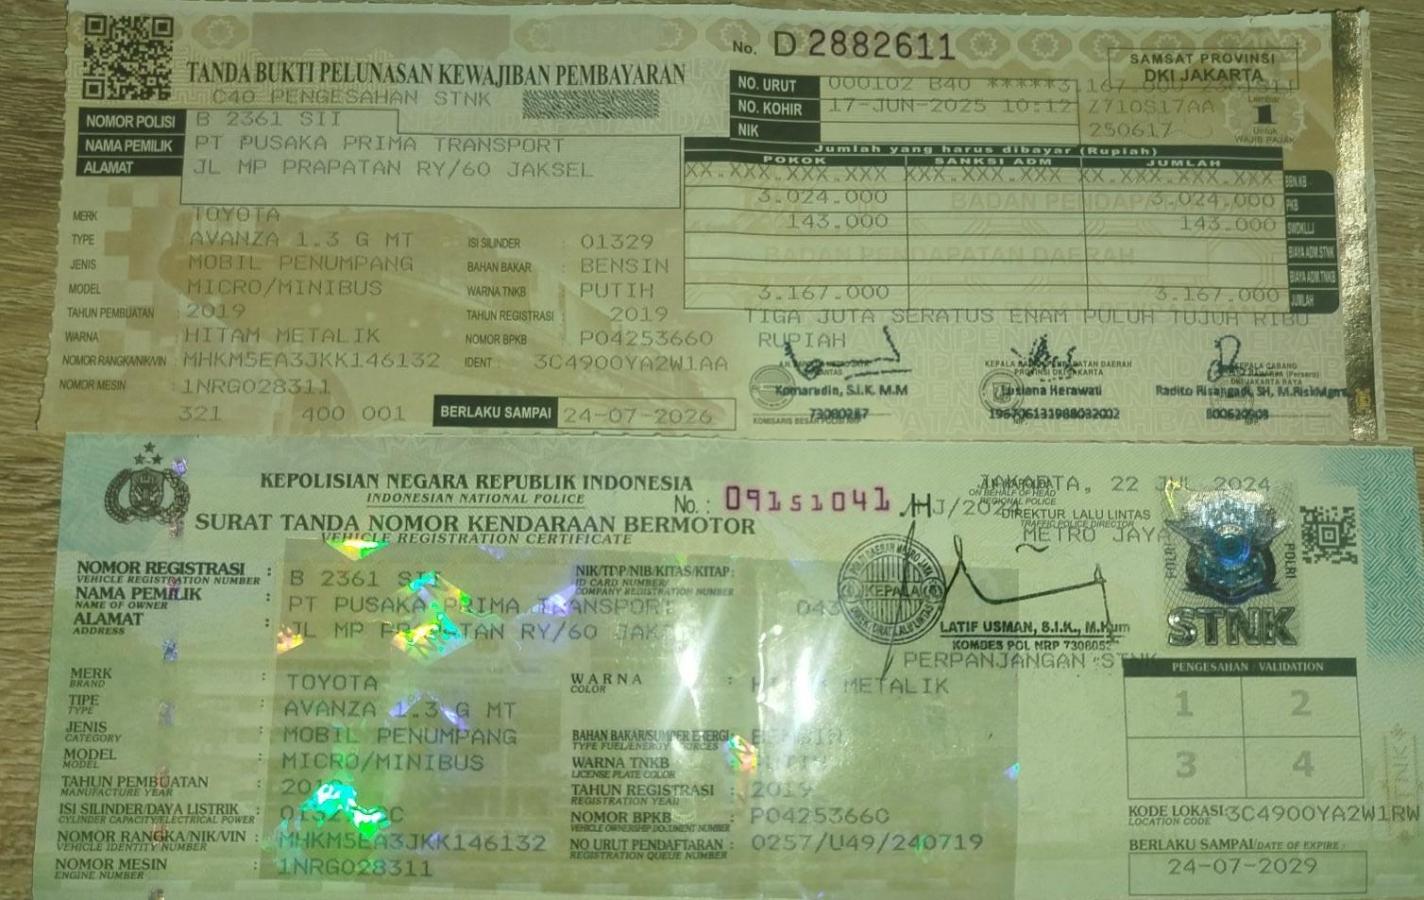 No. D 2882611
TANDA BUKTI PELUNASAN KEWAJIBAN PEMBAYARAN
SAMSAT PROVINSI
DKI JAKARTA
C40 PENGESAHAN STNK
NO. URUT 000102 B40 *****3.167.000
NO. KOHIR 17-JUN-2025 10:12 Z710S17AA
NIK 250617
Lembar
1
Untuk
WAJIB PAJAK
NOMOR POLISI B 2361 SII
NAMA PEMILIK PT PUSAKA PRIMA TRANSPORT
ALAMAT JL MP PRAPATAN RY/60 JAKSEL
Jumlah yang harus dibayar (Rupiah)
POKOK SANKSI ADM JUMLAH
XX.XXX.XXX.XXX XX.XXX.XXX.XXX XX.XXX.XXX.XXX BBN.KB
3.024.000 3.024.000 PKB
143.000 143.000 SWDKLLJ
BIAYA ADM.STNK
BIAYA ADM.TNKB
3.167.000 3.167.000 JUMLAH
TIGA JUTA SERATUS ENAM PULUH TUJUH RIBU
RUPIAH
MERK TOYOTA
TYPE AVANZA 1.3 G MT ISI SILINDER : 01329
JENIS MOBIL PENUMPANG BAHAN BAKAR : BENSIN
MODEL MICRO/MINIBUS WARNA TNKB : PUTIH
TAHUN PEMBUATAN : 2019 TAHUN REGISTRASI : 2019
WARNA : HITAM METALIK NOMOR BPKB : P04253660
NOMOR RANGKA/NIK/VIN : MHKM5EA3JKK146132 IDENT : 3C4900YA2W1AA
NOMOR MESIN : 1NRG028311
321 400 001 BERLAKU SAMPAI 24-07-2026
KEPALA BADAN PENDAPATAN DAERAH
PROVINSI DKI JAKARTA
KEPALA CABANG
DKI JAKARTA RAYA
Komarudin, S.I.K. M.M
Lusiana Herawati
Radito Risangadi, SH, M.RiskMgmt
196706131988032002
KEPOLISIAN NEGARA REPUBLIK INDONESIA
INDONESIAN NATIONAL POLICE
No. : 09151041 .H
SURAT TANDA NOMOR KENDARAAN BERMOTOR
VEHICLE REGISTRATION CERTIFICATE
JAKARTA, 22 JUL 2024
ON BEHALF OF HEAD
REGIONAL POLICE
DIREKTUR LALU LINTAS
TRAFFIC POLICE DIRECTOR
METRO JAYA
KEPALA
LATIF USMAN, S.I.K., M.Hum
KOMBES POL NRP
PERPANJANGAN STNK
POLRI
POLRI
STNK
NOMOR REGISTRASI : B 2361 SII
VEHICLE REGISTRATION NUMBER
NIK/TDP/NIB/KITAS/KITAP:
ID CARD NUMBER/
COMPANY REGISTRATION NUMBER
NAMA PEMILIK : PT PUSAKA PRIMA TRANSPORT
NAME OF OWNER
ALAMAT : JL MP PRAPATAN RY/60
ADDRESS
MERK : TOYOTA
BRAND
WARNA : METALIK
COLOR
TIPE : AVANZA 1.3 G MT
TYPE
JENIS : MOBIL PENUMPANG
CATEGORY
BAHAN BAKAR/SUMBER ENERGI :
TYPE FUEL/ENERGY SOURCES
MODEL : MICRO/MINIBUS
MODEL
WARNA TNKB :
LICENSE PLATE COLOR
TAHUN PEMBUATAN : 2019
MANUFACTURE YEAR
TAHUN REGISTRASI : 2019
REGISTRATION YEAR
ISI SILINDER/DAYA LISTRIK :
CYLINDER CAPACITY/ELECTRICAL POWER
NOMOR BPKB : P04253660
VEHICLE OWNERSHIP DOCUMENT NUMBER
NOMOR RANGKA/NIK/VIN : MHKM5EA3JKK146132
VEHICLE IDENTITY NUMBER
NO URUT PENDAFTARAN : 0257/U49/240719
REGISTRATION QUEUE NUMBER
NOMOR MESIN : 1NRG028311
ENGINE NUMBER
PENGESAHAN / VALIDATION
1 2
3 4
KODE LOKASI: 3C4900YA2W1RW
LOCATION CODE
BERLAKU SAMPAI/DATE OF EXPIRE :
24-07-2029